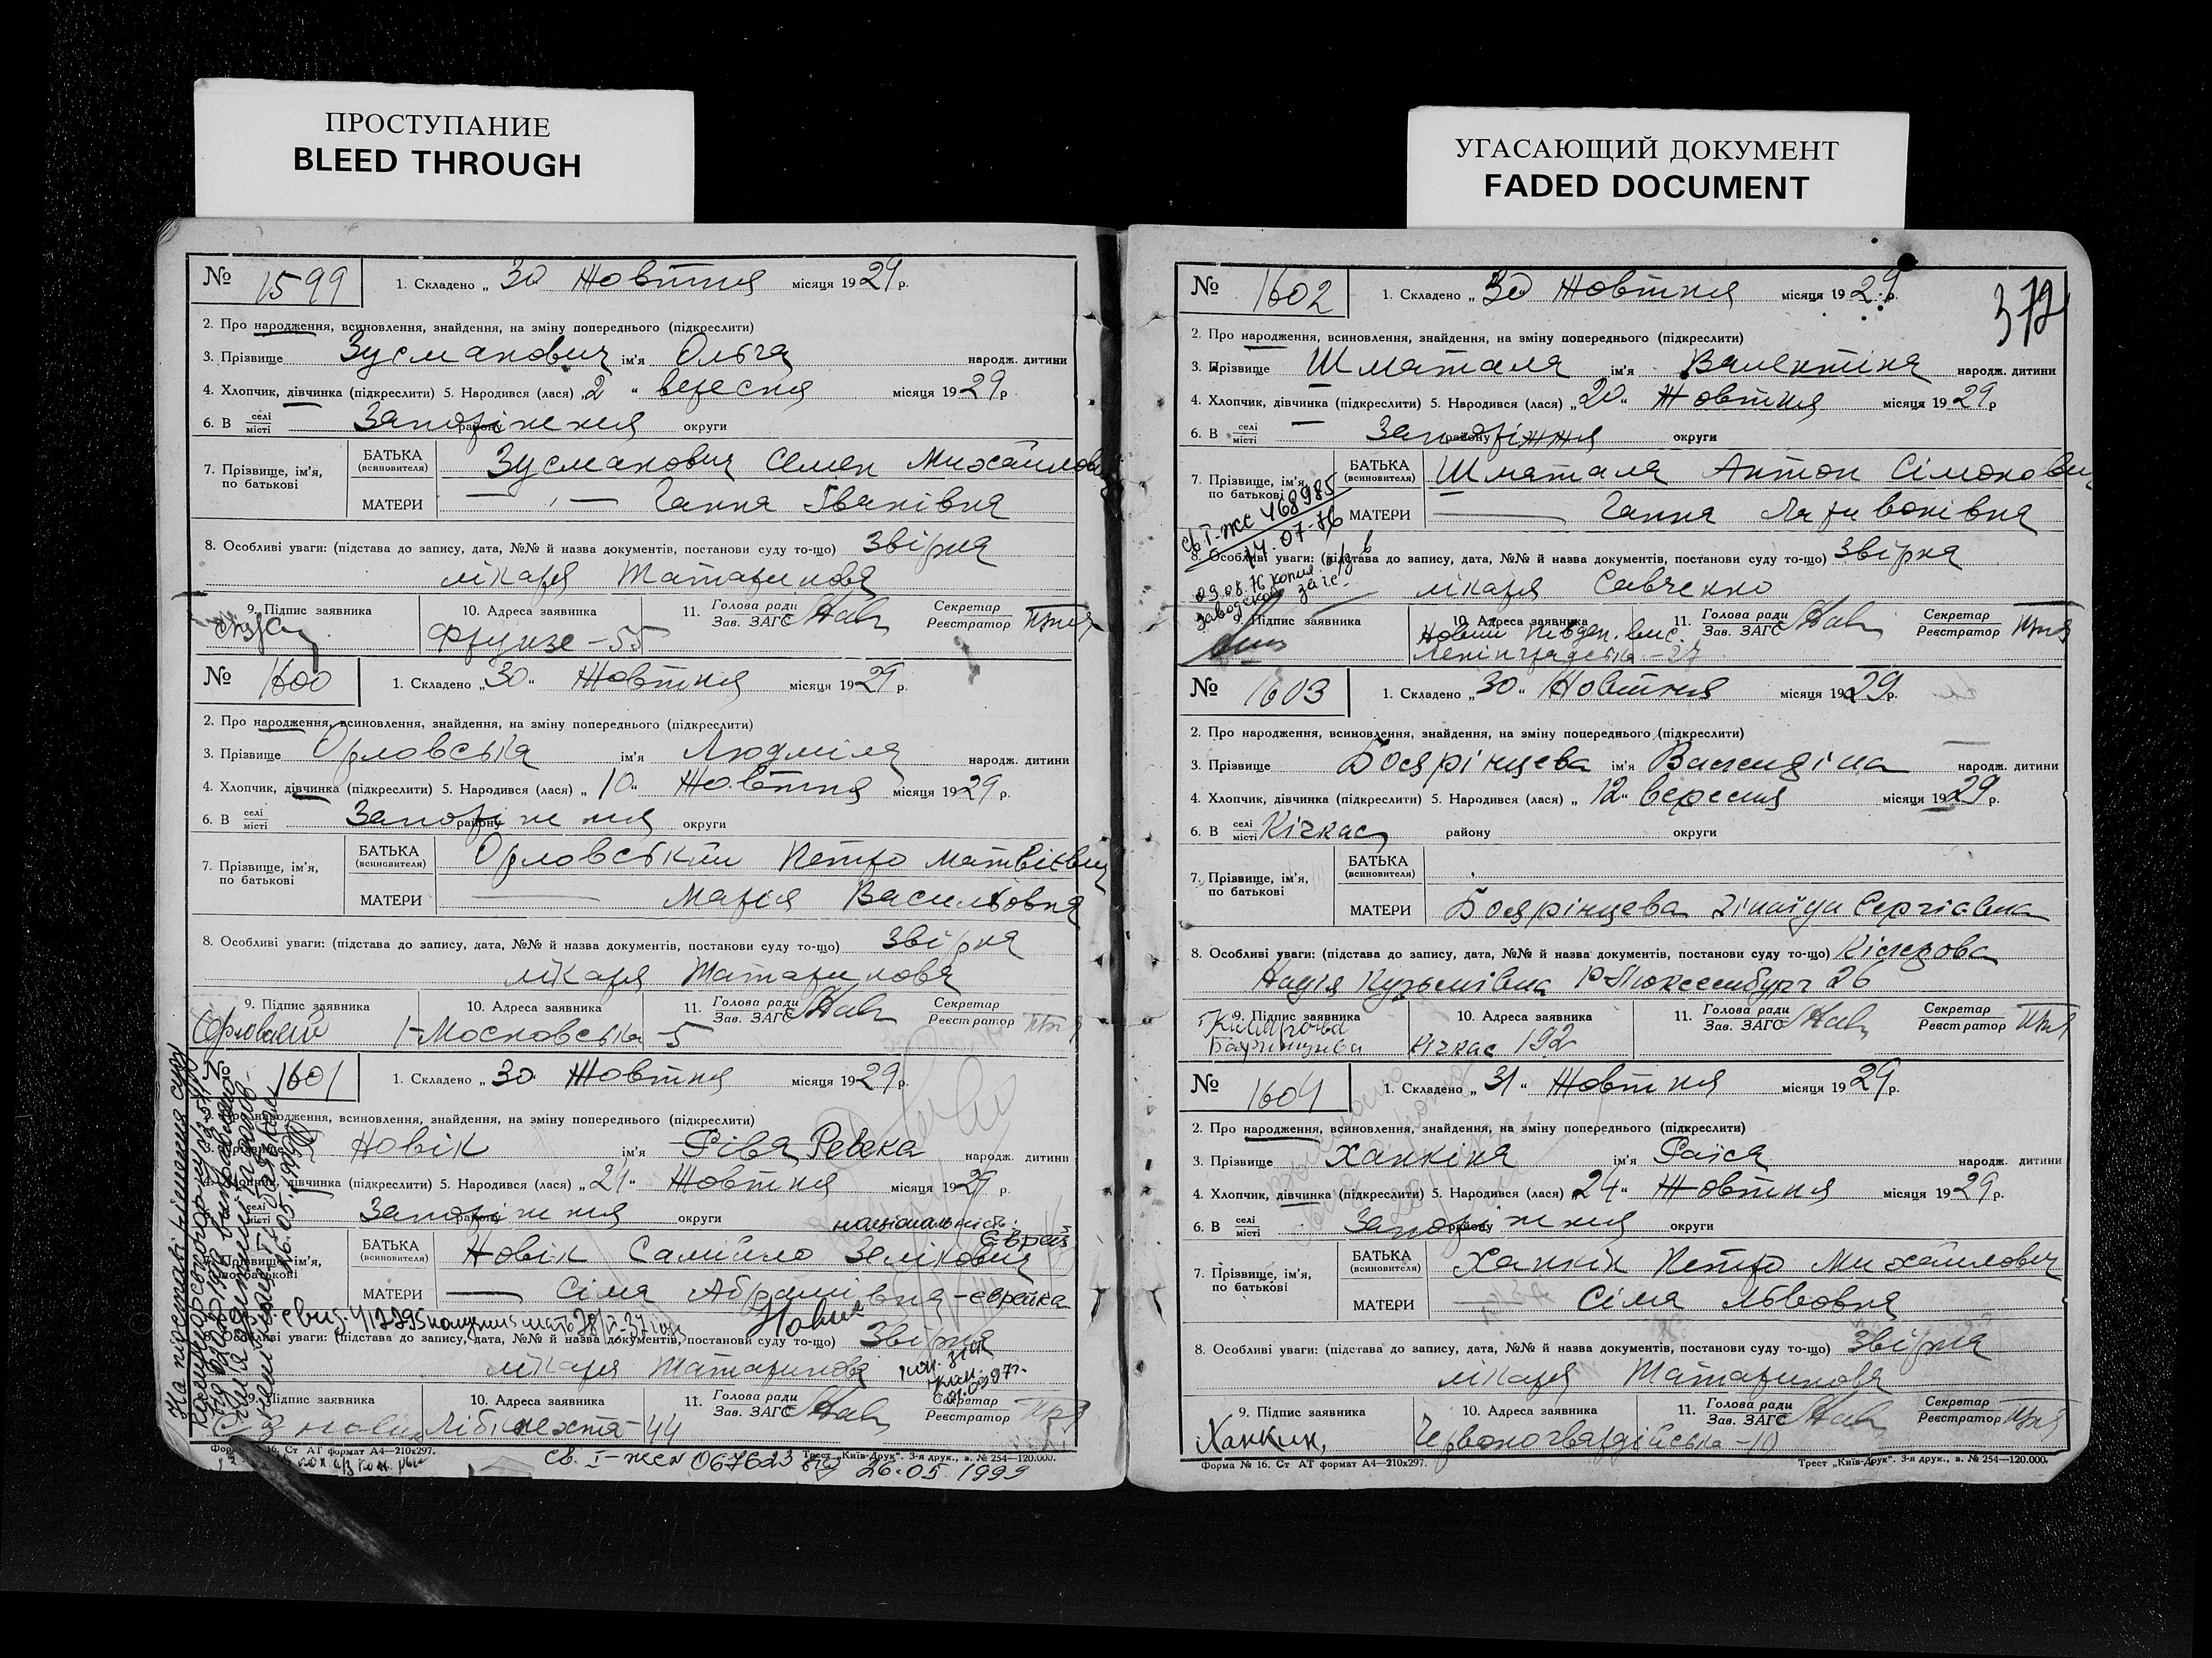 ПРОСТУПАНИЕ
BLEED THROUGH
УГАСАЮЩИЙ ДОКУМЕНТ
FADED DOCUMENT
№ 1599 1. Складено „ 30 Жовтня місяця 1929 р.
2. Про народження, всиновлення, знайдення, на зміну попереднього (підкреслити)
3. Прізвище Зусманович ім'я Ольга народж. дитини
4. Хлопчик, дівчинка (підкреслити) 5. Народився (лася) „ 2 " вересня місяця 1929 р
6. В селі місті Запоріжжя району округи
7. Прізвище, ім'я, по батькові
БАТЬКА (всиновителя) Зусманович Семен Михайлович
МАТЕРИ — " — Ганна Іванівна
8. Особливі уваги: (підстава до запису, дата, №№ й назва документів, постанови суду то-що) Звірка
лікаря Татаринова
9. Підпис заявника 10. Адреса заявника 11. Голова ради Зав. ЗАГС Секретар Реєстратор
Фрунзе - 55
№ 1600 1. Складено „ 30 " Жовтня місяця 1929 р.
2. Про народження, всиновлення, знайдення, на зміну попереднього (підкреслити)
3. Прізвище Орловська ім'я Людміла народж. дитини
4. Хлопчик, дівчинка (підкреслити) 5. Народився (лася) „ 10 " Жовтня місяця 1929 р.
6. В селі місті Запоріжжя району округи
7. Прізвище, ім'я, по батькові
БАТЬКА (всиновителя) Орловський Петро Матвієвич
МАТЕРИ — Марія Васильовна
8. Особливі уваги: (підстава до запису, дата, №№ й назва документів, постанови суду то-що) Звірка
лікаря Татаринова
9. Підпис заявника 10. Адреса заявника 11. Голова ради Зав. ЗАГС Секретар Реєстратор
Орловский І-Московська 5
№ 1601 1. Складено „ 30 Жовтня місяця 1929 р.
2. Про народження, всиновлення, знайдення, на зміну попереднього (підкреслити)
3. Прізвище Новік ім'я Ріва Ревека народж. дитини
4. Хлопчик, дівчинка (підкреслити) 5. Народився (лася) „ 24 " Жовтня місяця 1929 р.
6. В селі місті Запоріжжя району округи
національність: єврей
7. Прізвище, ім'я, по батькові
БАТЬКА (всиновителя) Новік Самійло Зелікович
МАТЕРИ — Сіма Абрамівна - єврейка
Новик
8. Особливі уваги: (підстава до запису, дата, №№ й назва документів, постанови суду то-що) Звірка
лікаря Татаринова
9. Підпис заявника 10. Адреса заявника 11. Голова ради Зав. ЗАГС Секретар Реєстратор
Лібкнехта - 44
На підставі рішення суду
16.05.1999
Форма № 16. Ст АТ формат А4—210х297. Трест „Київ-Друк". 3-я друк., в. № 254—120.000.
Св. І-жс № 067623 26.05.1999
372
№ 1602 1. Складено „ 30 Жовтня місяця 1929 р.
2. Про народження, всиновлення, знайдення, на зміну попереднього (підкреслити)
3. Прізвище Шматала ім'я Валентіна народж. дитини
4. Хлопчик, дівчинка (підкреслити) 5. Народився (лася) „ 20 " Жовтня місяця 1929 р
6. В селі місті Запоріжжя району округи
7. Прізвище, ім'я, по батькові
БАТЬКА (всиновителя) Шматала Антон Сімонович
МАТЕРИ — Ганна Ларивонівна
св І-ЖС 468985
14.07-76
8. Особливі уваги: (підстава до запису, дата, №№ й назва документів, постанови суду то-що) Звірка
лікаря Савченко
09.08.76 копия а/з в
Заводской загс
9. Підпис заявника 10. Адреса заявника 11. Голова ради Зав. ЗАГС Секретар Реєстратор
Новий Півден. вис.
Ленінградська - 27
№ 1603 1. Складено „ 30 " Жовтня місяця 1929 р.
2. Про народження, всиновлення, знайдення, на зміну попереднього (підкреслити)
3. Прізвище Боярінцева ім'я Валендіна народж. дитини
4. Хлопчик, дівчинка (підкреслити) 5. Народився (лася) „ 12 " вересня місяця 1929 р.
6. В селі місті Кічкас району округи
7. Прізвище, ім'я, по батькові
БАТЬКА (всиновителя)
МАТЕРИ Боярінцева Зінаїда Сергієвна
8. Особливі уваги: (підстава до запису, дата, №№ й назва документів, постанови суду то-що)
Надія Кузьмівна Р-Люксембург 26
9. Підпис заявника 10. Адреса заявника 11. Голова ради Зав. ЗАГС Секретар Реєстратор
Кічкас 192
№ 1604 1. Складено „ 31 " Жовтня місяця 1929 р.
2. Про народження, всиновлення, знайдення, на зміну попереднього (підкреслити)
3. Прізвище Ханкіна ім'я Раіса народж. дитини
4. Хлопчик, дівчинка (підкреслити) 5. Народився (лася) „ 24 " Жовтня місяця 1929 р.
6. В селі місті Запоріжжя району округи
7. Прізвище, ім'я, по батькові
БАТЬКА (всиновителя) Ханкін Петро Михайлович
МАТЕРИ — Сіма Львовна
8. Особливі уваги: (підстава до запису, дата, №№ й назва документів, постанови суду то-що) Звірка
лікаря Татаринова
9. Підпис заявника 10. Адреса заявника 11. Голова ради Зав. ЗАГС Секретар Реєстратор
Ханкин, Червоногвардійська - 10
Форма № 16. Ст АТ формат А4—210х297. Трест „Київ-Друк". 3-я друк., в. № 254—120.000.